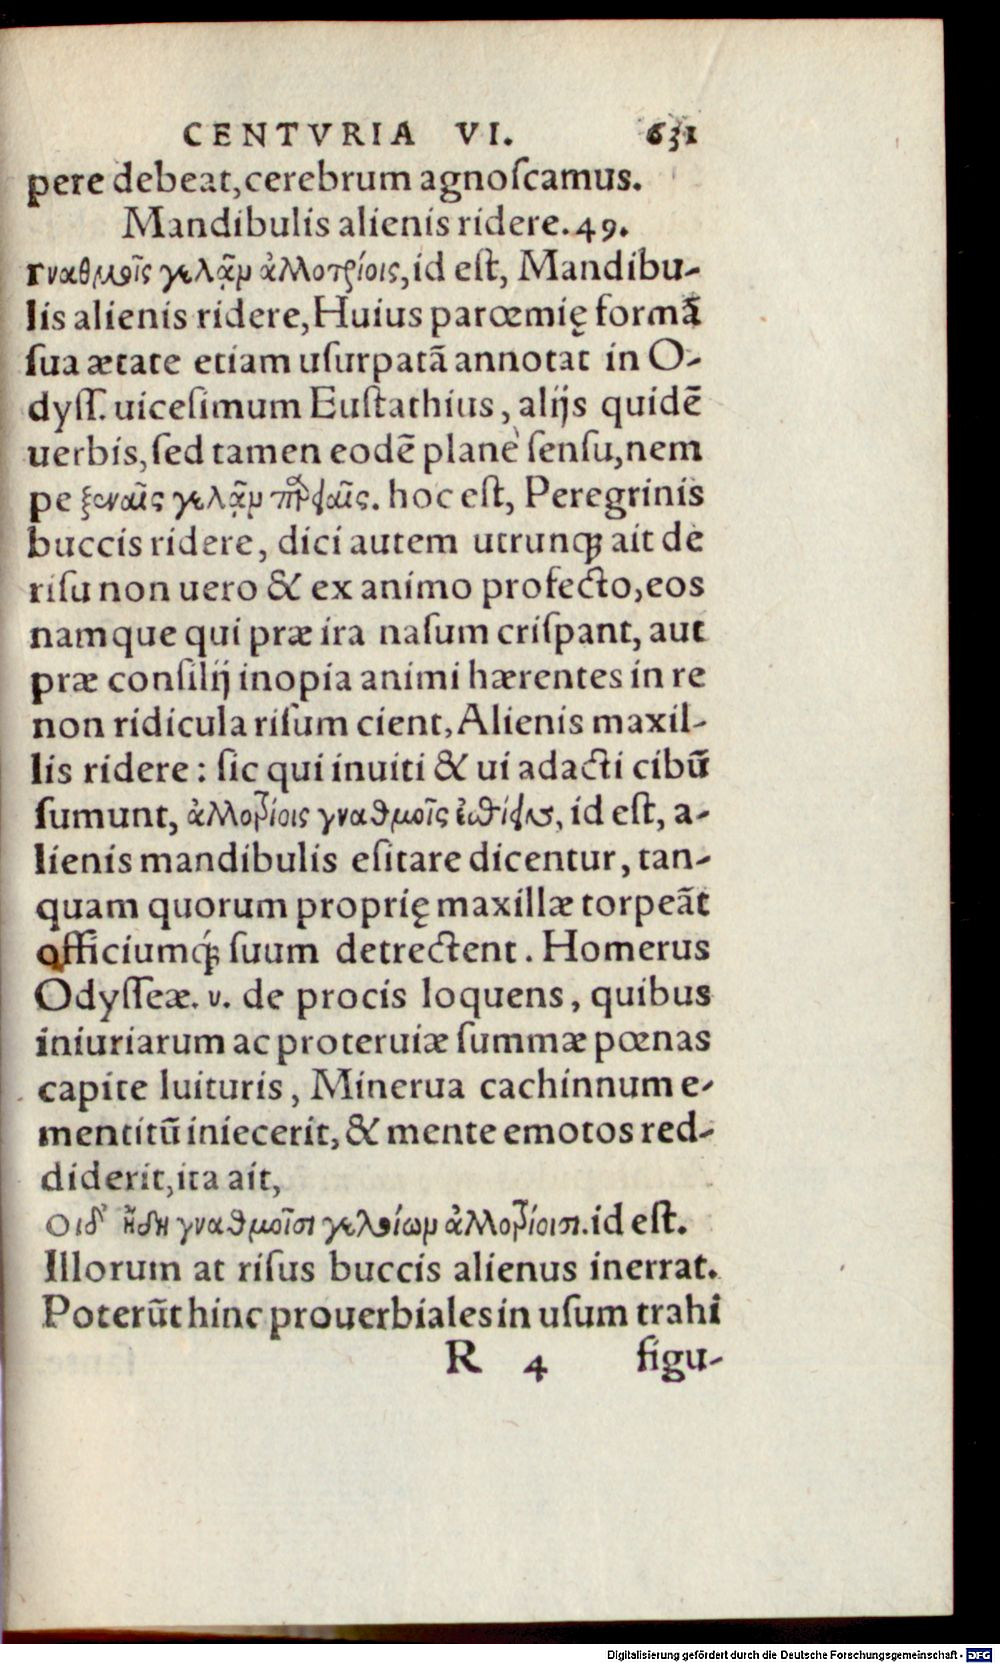 CENTVRIA VI. 631
pere debeat, cerebrum agnoſcamus.
Mandibulis alienis ridere. 49.
Γναθμοῖς γελᾷν ἀλλοτρίοις, id eſt, Mandibu-
lis alienis ridere, Huius parœmię formã
ſua ætate etiam uſurpatã annotat in O-
dyſſ. uiceſimum Euſtathius, alijs quidẽ
uerbis, ſed tamen eodẽ planè ſenſu, nem
pe ξεναῖς γελᾷν παρειαῖς. hoc eſt, Peregrinis
buccis ridere, dici autem utrunq; ait de
riſu non uero & ex animo profecto, eos
namque qui præ ira naſum criſpant, aut
præ conſilij inopia animi hærentes in re
non ridicula riſum cient, Alienis maxil-
lis ridere: ſic qui inuiti & ui adacti cibũ
ſumunt, ἀλλοτρίοις γναθμοῖς ἐσθίειν, id eſt, a-
lienis mandibulis eſitare dicentur, tan-
quam quorum proprię maxillæ torpeãt
officiumq́; ſuum detrectent. Homerus
Odyſſeæ. υ. de procis loquens, quibus
iniuriarum ac proteruiæ ſummæ pœnas
capite luituris, Minerua cachinnum e-
mentitũ iniecerit, & mente emotos red-
diderit, ita ait,
Οιδ' ἤδη γναθμοῖσι γελοίων ἀλλοτρίοισι. id eſt.
Illorum at riſus buccis alienus inerrat.
Poterũt hinc prouerbiales in uſum trahi
R 4 figu-
Digitalisierung gefördert durch die Deutsche Forschungsgemeinschaft - DFG